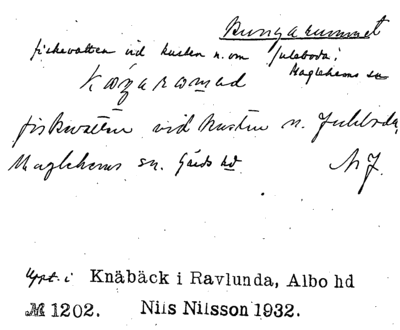 Kungarummet
fiskevatten vid kusten n. om Juleboda;
Maglehems sn
fiskvatten vid kusten n. Juleboda,
Maglehems sn. Gärds hd NJ
Uppt. i Knäbäck i Ravlunda, Albo hd
№ 1202. Nils Nilsson 1932.